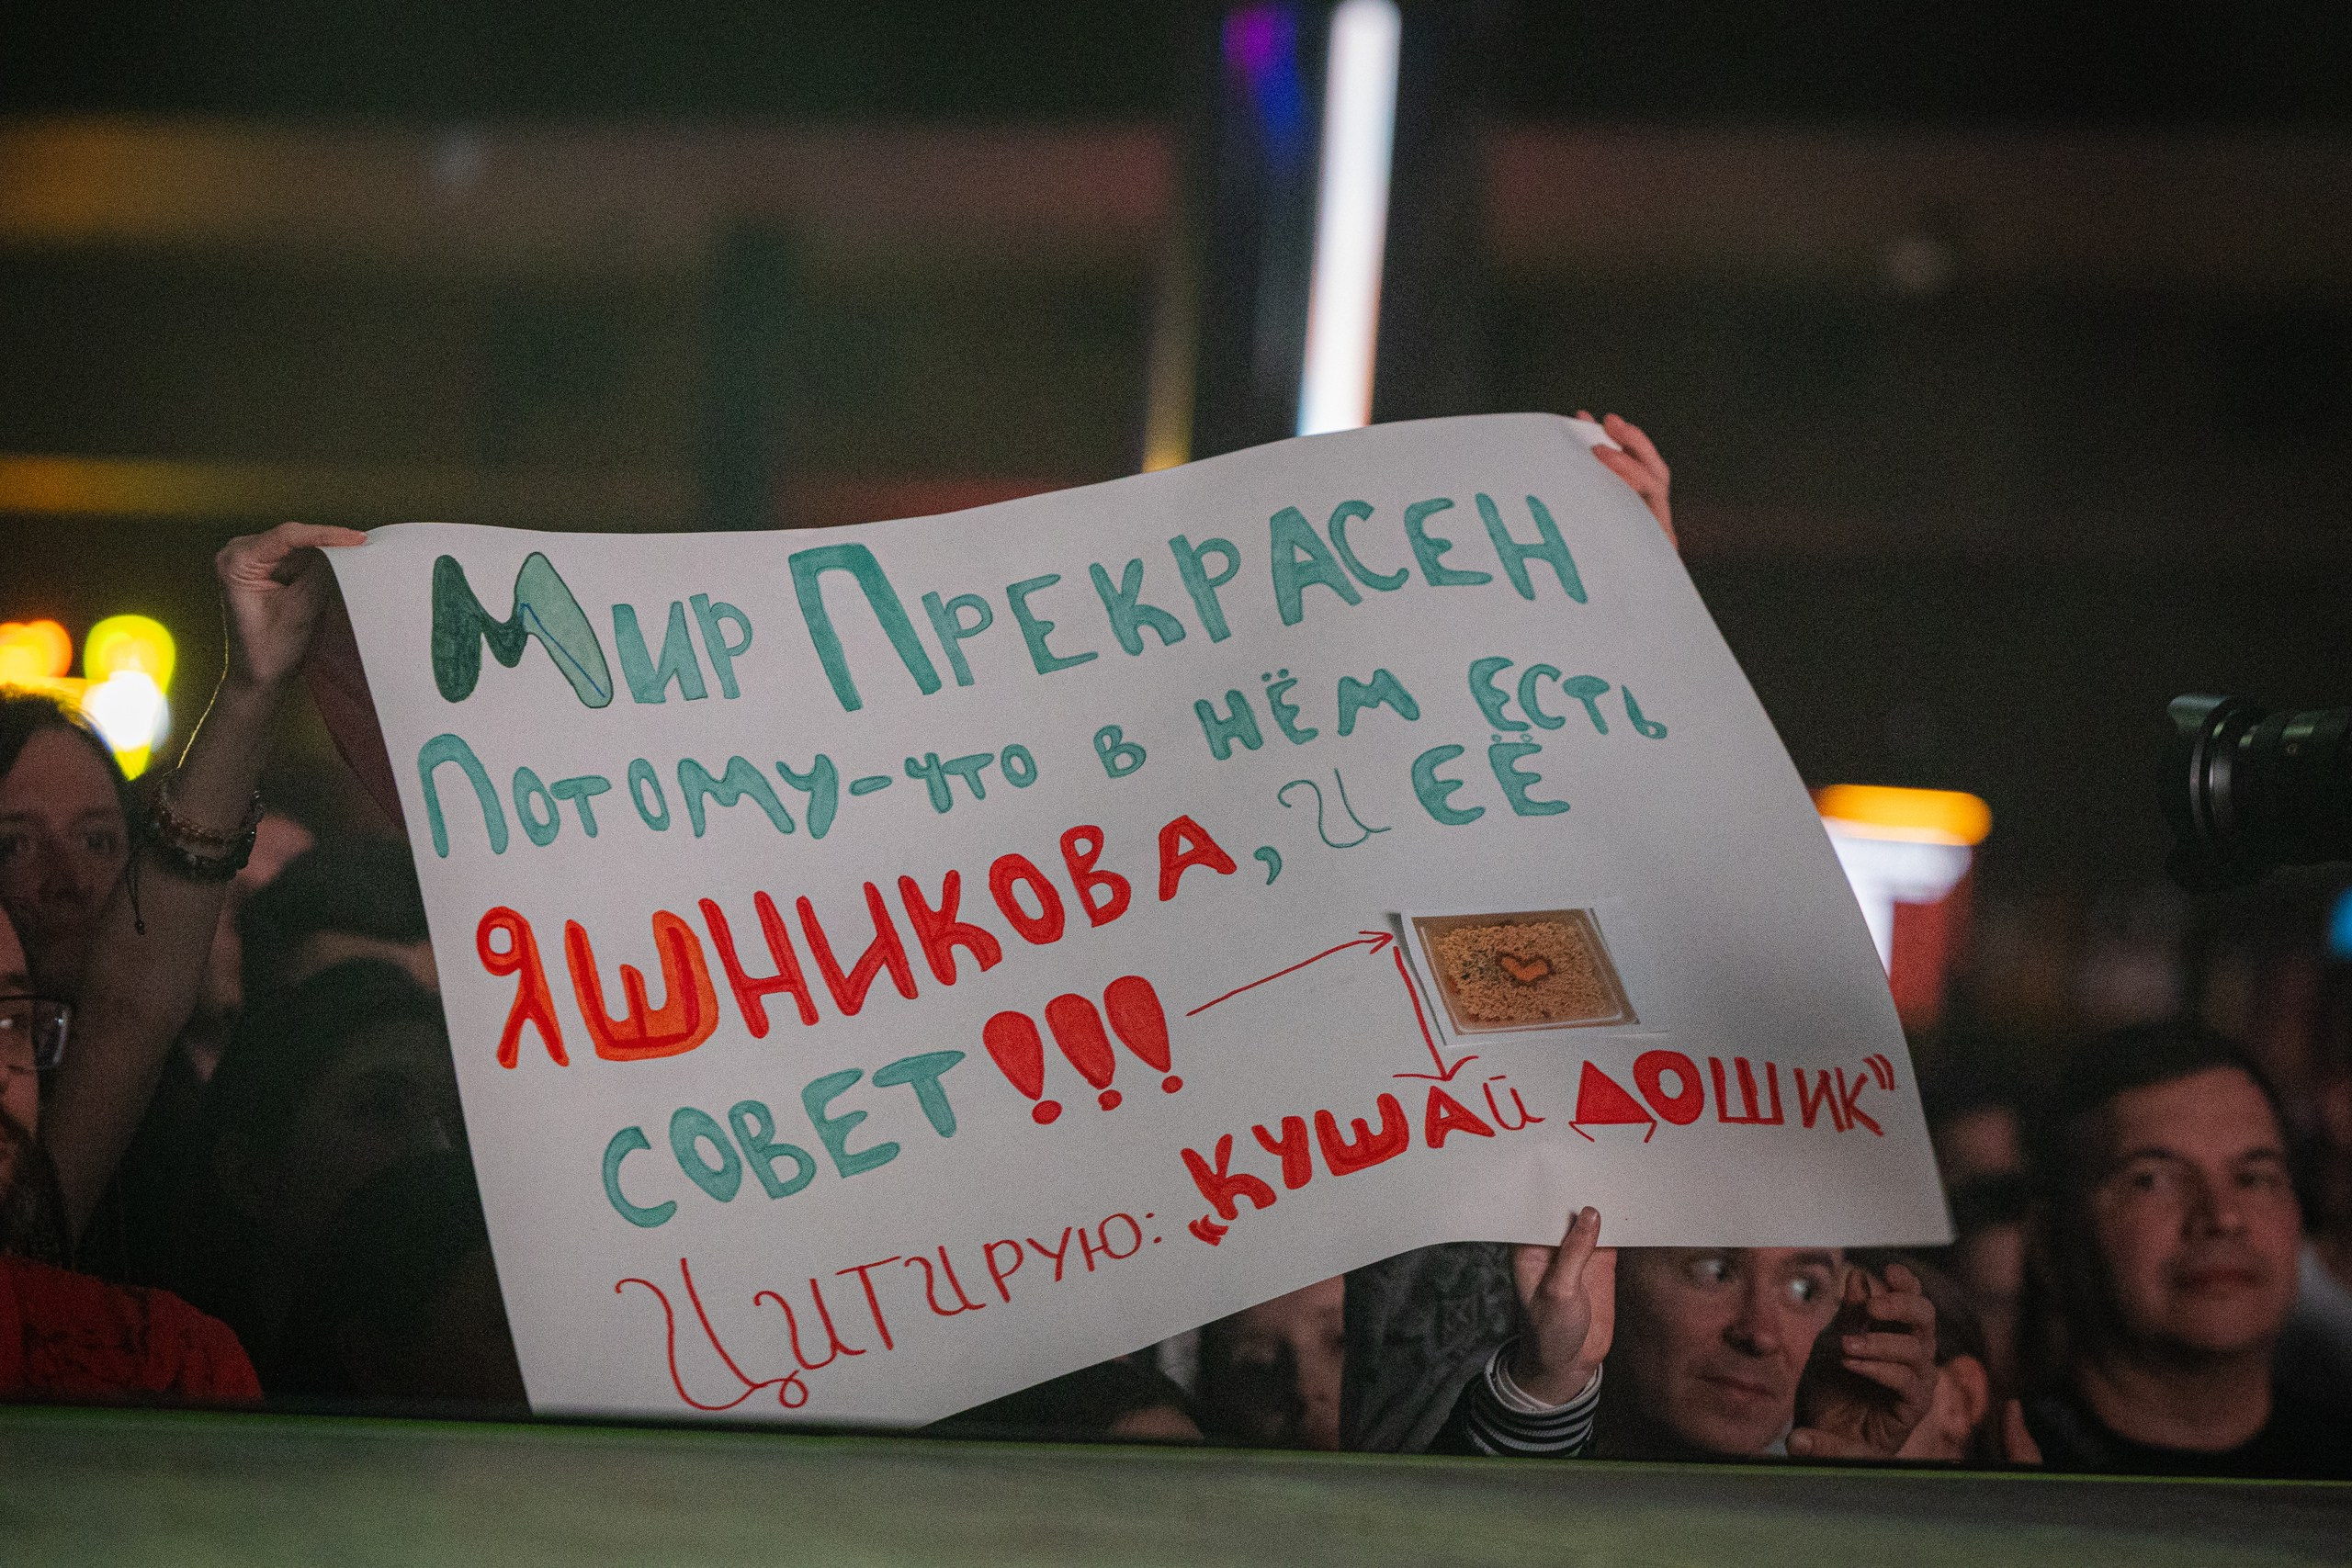 Мир Прекрасен
Потому-что в нём есть
ЯШНИКОВА, и её
совет!!!
Цитирую: „кушай дошик”